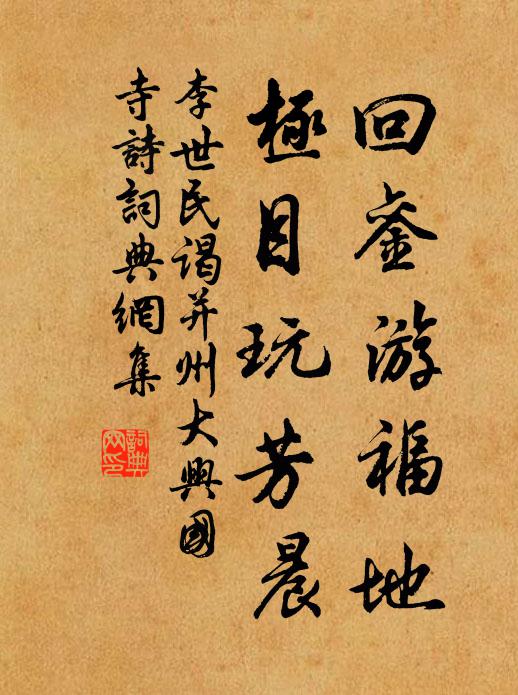 回銮游福地
極目玩芳晨
李世民谒并州大興國
寺詩詞典網集
詞典
网印